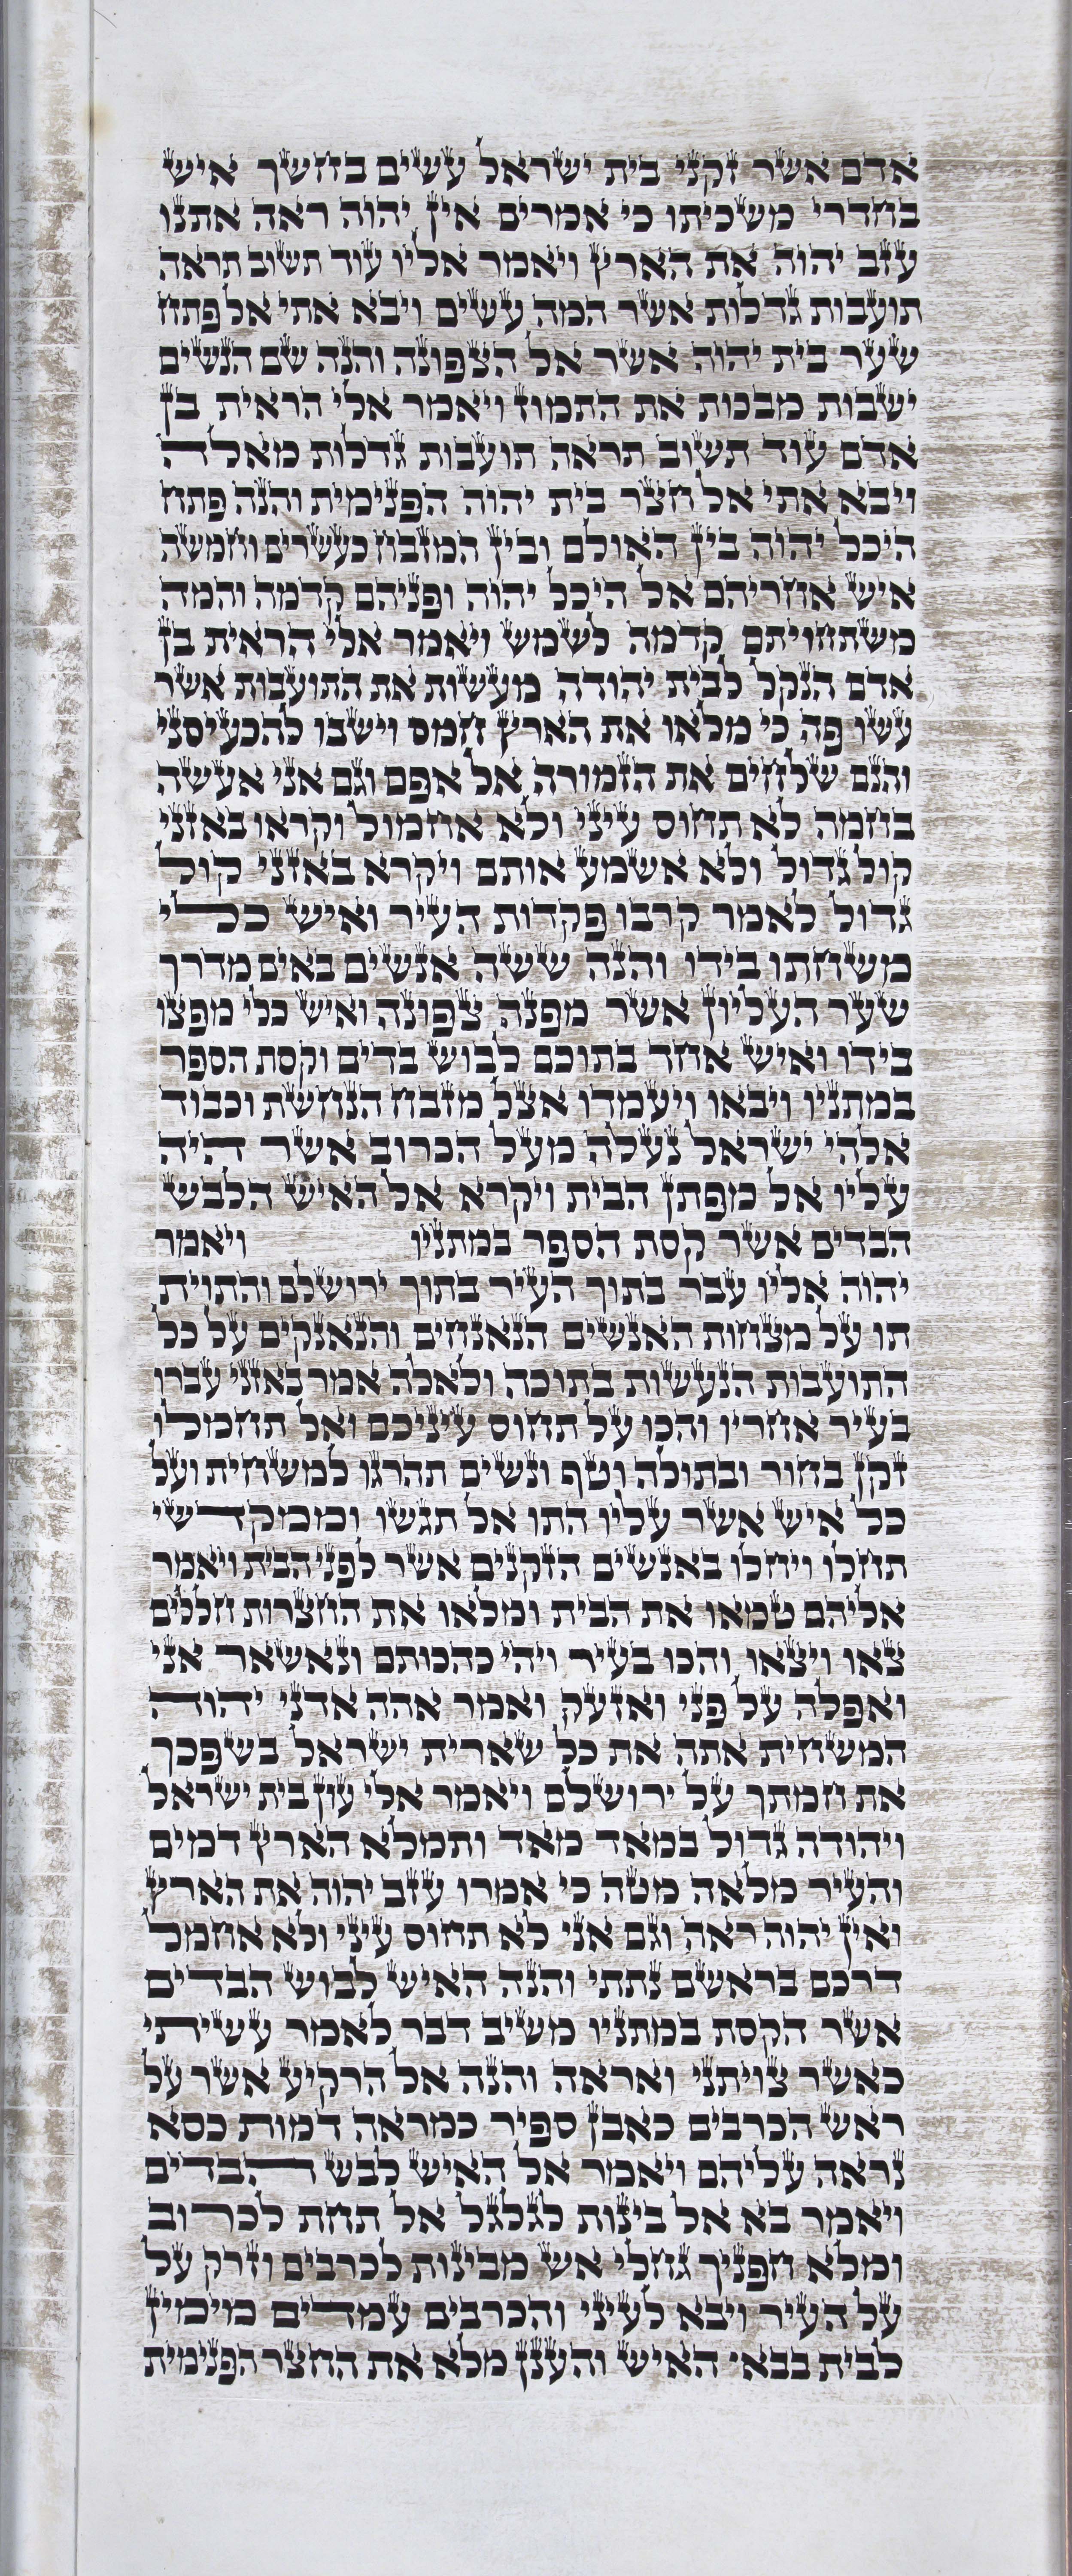 אדם אשר זקני בית ישראל עשים בחשך איש
בחדרי משכיתו כי אמרים אין יהוה ראה אתנו
עזב יהוה את הארץ ויאמר אליו עוד תשוב תראה
תועבות גדלות אשר המה עשים ויבא אתי אל פתח
שער בית יהוה אשר אל הצפונה והנה שם הנשים
ישבות מבכות את התמוז ויאמר אלי הראית בן
אדם עוד תשוב תראה תועבות גדלות מאלה
ויבא אתי אל חצר בית יהוה הפנימית והנה פתח
היכל יהוה בין האולם ובין המזבח כעשרים וחמשה
איש אחריהם אל היכל יהוה ופניהם קדמה והמה
משתחויתם קדמה לשמש ויאמר אלי הראית בן
אדם הנקל לבית יהודה מעשות את התועבות אשר
עשו פה כי מלאו את הארץ חמס וישבו להכעיסני
והנם שלחים את הזמורה אל אפם וגם אני אעשה
בחמה לא תחוס עיני ולא אחמול וקראו באזני
קול גדול ולא אשמע אותם ויקרא באזני קול
גדול לאמר קרבו פקדות העיר ואיש כלי
משחתו בידו והנה ששה אנשים באים מדרך
שער העליון אשר מפנה צפונה ואיש כלי מפצו
בידו ואיש אחד בתוכם לבוש בדים וקסת הספר
במתניו ויבאו ויעמדו אצל מזבח הנחשת וכבוד
אלהי ישראל נעלה מעל הכרוב אשר היה
עליו אל מפתן הבית ויקרא אל האיש הלבש
הבדים אשר קסת הספר במתניו ויאמר
יהוה אליו עבר בתוך העיר בתוך ירושלם והתוית
תו על מצחות האנשים הנאנחים והנאנקים על כל
התועבות הנעשות בתוכה ולאלה אמר באזני עברו
בעיר אחריו והכו על תחוס עיניכם ואל תחמלו
זקן בחור ובתולה וטף ונשים תהרגו למשחית ועל
כל איש אשר עליו התו אל תגשו וממקדשי
תחלו ויחלו באנשים הזקנים אשר לפני הבית ויאמר
אליהם טמאו את הבית ומלאו את החצרות חללים
צאו ויצאו והכו בעיר ויהי כהכותם ונאשאר אני
ואפלה על פני ואזעק ואמר אהה אדני יהוה
המשחית אתה את כל שארית ישראל בשפכך
את חמתך על ירושלם ויאמר אלי עון בית ישראל
ויהודה גדול במאד מאד ותמלא הארץ דמים
והעיר מלאה מטה כי אמרו עזב יהוה את הארץ
ואין יהוה ראה וגם אני לא תחוס עיני ולא אחמל
דרכם בראשם נתתי והנה האיש לבוש הבדים
אשר הקסת במתניו משיב דבר לאמר עשיתי
כאשר צויתני ואראה והנה אל הרקיע אשר על
ראש הכרבים כאבן ספיר כמראה דמות כסא
נראה עליהם ויאמר אל האיש לבש הבדים
ויאמר בא אל בינות לגלגל אל תחת לכרוב
ומלא חפניך גחלי אש מבינות לכרבים וזרק על
על העיר ויבא לעיני והכרבים עמדים מימין
לבית בבאי האיש והענן מלא את החצר הפנימית